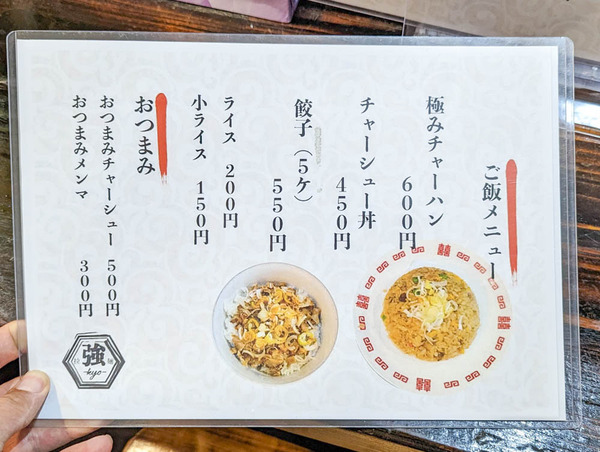 ご飯メニュー
極みチャーハン
600円
チャーシュー丼
450円
餃子(5ケ)
550円
ライス 200円
小ライス 150円
おつまみ
おつまみチャーシュー 500円
おつまみメンマ 300円
強
-kyo-